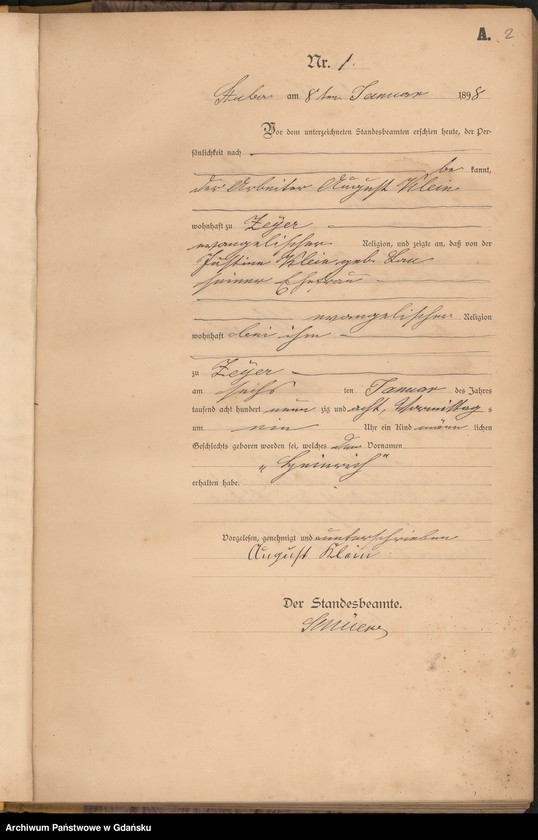 A. 2
Nr. 1.
Stuba am 8ten Januar 1898
Vor dem unterzeichneten Standesbeamten erschien heute, der Per-
sönlichkeit nach
be kannt,
der Arbeiter August Klein
wohnhaft zu Zeyer
evangelischer Religion, und zeigte an, daß von der
Justine Klein geb. Lau
seiner Ehefrau
evangelischer Religion
wohnhaft bei ihm
zu Zeyer
am sechs ten Januar des Jahres
tausend acht hundert neun zig und acht, Vormittag s
um ein Uhr ein Kind männ lichen
Geschlechts geboren worden sei, welches den Vornamen
„Heinrich"
erhalten habe.
Vorgelesen, genehmigt und unterschrieben
August Klein
Der Standesbeamte.
Archiwum Państwowe w Gdańsku